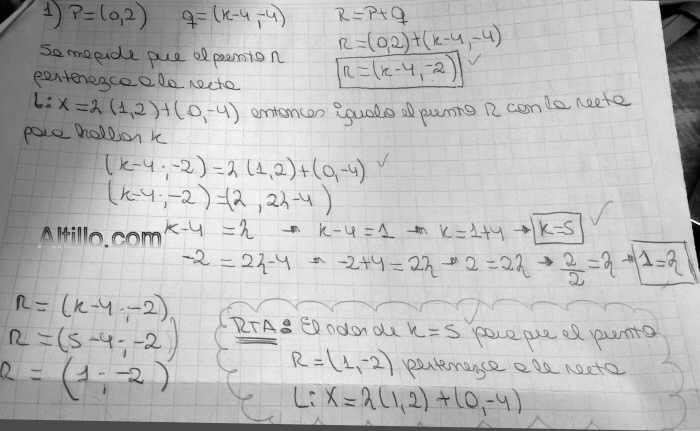 1) P=(0,2) q=(k-4,-4) R=P+q
R=(0,2)+(k-4,-4)
Se me pide que el punto R
R=(k-4,-2)
pertenezca a la recta
L: X=λ(1,2)+(0,-4) entonces igualo el punto R con la recta
para hallar k
(k-4;-2)=λ(1,2)+(0,-4)
(k-4;-2)=(λ, 2λ-4)
Altillo.com
k-4 = λ → k-4=1 → k=1+4 → k=5
-2 = 2λ-4 → -2+4=2λ → 2=2λ → 2/2=λ → 1=λ
R=(k-4;-2)
R=(5-4;-2)
R=(1;-2)
RTA: El valor de k=5 para que el punto
R=(1,-2) pertenezca a la recta
L: X=λ(1,2)+(0,-4)